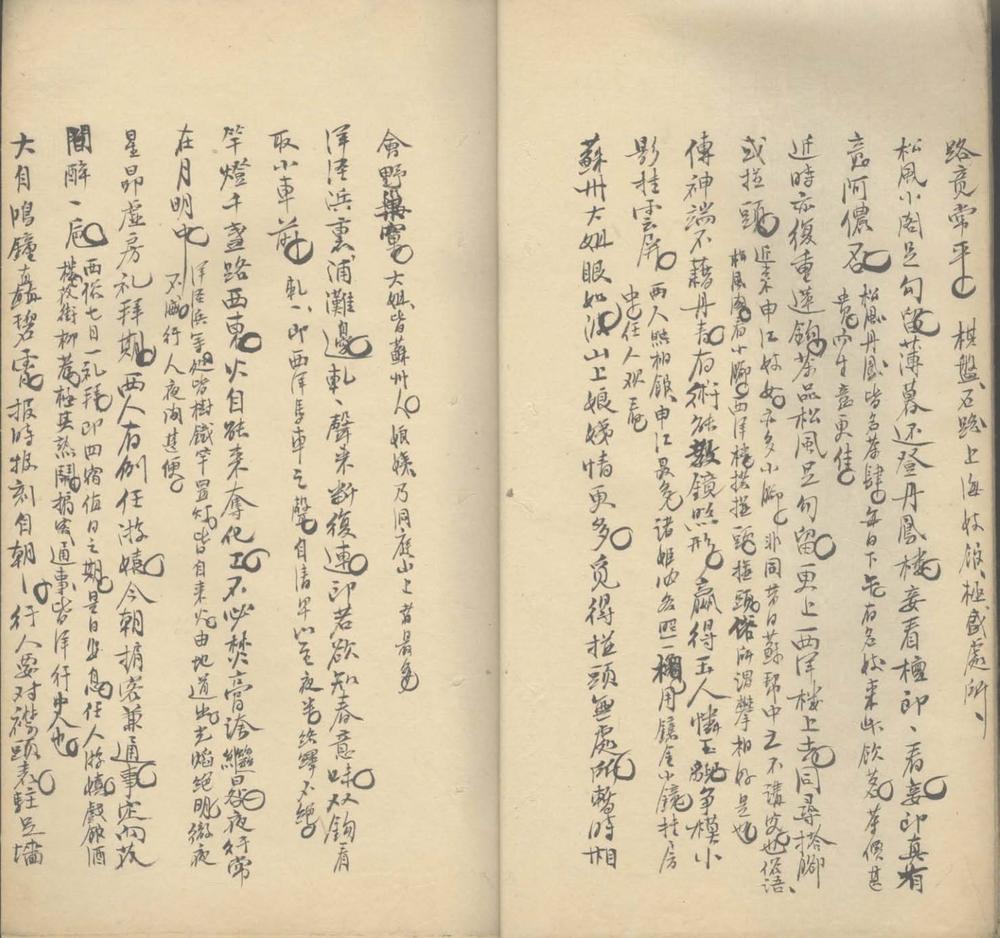 路竟常平 棋盤石路上海妓館極盛處所
松風小閣足句留薄暮還登丹鳳樓妾看檀郎郎看妾郎真有
意阿儂否 松風丹鳳皆名茶肆每日下午有名妓來此飲茗茶價甚
貴而生意更佳
近時亦復重蓮鉤茶品松風足句留更上一西洋樓上去同尋搭腳
或挜頭 近來申江妓女亦多小腳非同昔日蘇幫中之不講究也俗語
松風閣看小腳西洋樓搭挜頭挜頭俗所謂攀相好是也
傳神端不藉丹青有術能教鏡照形贏得玉人憐玉貌爭模小
影挂雲屏 西人照相館申江最多諸姬必各照一樹用鑲金小鏡挂房
中任人觀看
蘇州大姐眼如波山上娘姨情更多覓得挜頭無處所暫時相
會野雞窠 大姐皆蘇州人娘姨乃洞庭山上者最多
洋涇浜裏浦灘邊軋軋聲來斷復連郎若欲知春意味双鉤看
取小車前 軋軋即西洋馬車之聲自清早以至夜半絡繹不絕
竿燈千盞路西東火自能來奪化工不必焚膏誇繼晷夜行常
在月明中 洋涇浜等處皆樹鐵竿置燈皆自來火由地道出光焰絕明徹夜
不滅行人夜間甚便
星昴虛房礼拜期西人有例任游嬉今朝捐客兼通事定向茂
間醉一卮 西俗七日一礼拜即四宿值日之期是日安息任人游嬉戲館酒
樓花街柳巷極其熱鬧捐客通事皆洋行中人也
大自鳴鐘矗碧霄報時報刻自朝朝行人要對襟頭表駐足墻